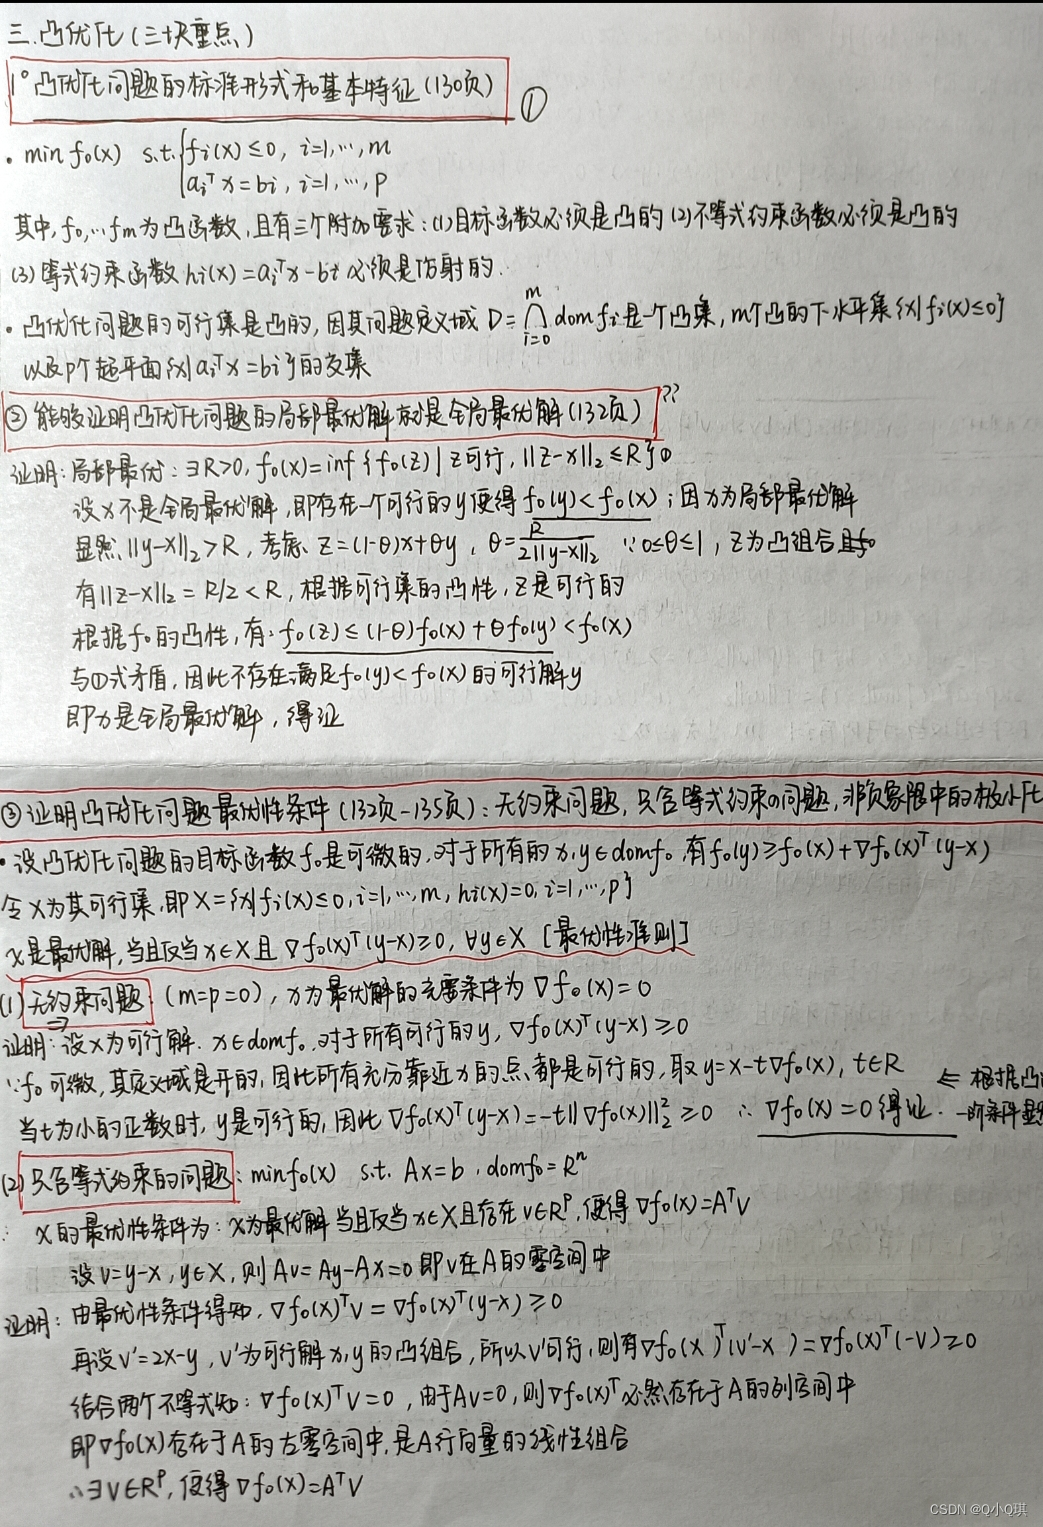 三.凸优化(三块重点)
1°凸优化问题的标准形式和基本特征(130页) ①
· min f₀(x) s.t. { fi(x)≤0, i=1,…,m
aiᵀx=bi, i=1,…,p
其中,f₀,…fm为凸函数,且有三个附加要求:(1)目标函数必须是凸的(2)不等式约束函数必须是凸的
(3)等式约束函数hi(x)=aiᵀx-bi必须是仿射的.
· 凸优化问题的可行集是凸的,因其问题定义域 D=⋂_{i=0}^{m} dom fi是一个凸集,m个凸的下水平集{x|fi(x)≤0}
以及p个超平面{x|aiᵀx=bi}的交集
② 能够证明凸优化问题的局部最优解就是全局最优解(132页) ??
证明:局部最优:∃R>0, f₀(x)=inf{f₀(z)|z可行, ||z-x||₂≤R} ①
设x不是全局最优解,即存在一个可行的y使得f₀(y)<f₀(x);因x为局部最优解
显然, ||y-x||₂>R, 考虑 z=(1-θ)x+θy, θ=R/2||y-x||₂ ∵0≤θ≤1, z为凸组合且
有||z-x||₂=R/2<R, 根据可行集的凸性, z是可行的
根据f₀的凸性,有:f₀(z)≤(1-θ)f₀(x)+θf₀(y)<f₀(x)
与①式矛盾,因此不存在满足f₀(y)<f₀(x)的可行解y
即x是全局最优解,得证
③证明凸优化问题最优性条件(132页-135页):无约束问题,只含等式约束的问题,非负象限中的极小化
· 设凸优化问题的目标函数f₀是可微的,对于所有的x,y∈domf₀,有f₀(y)≥f₀(x)+∇f₀(x)ᵀ(y-x)
令X为其可行集,即X={x|fi(x)≤0,i=1,…,m, hi(x)=0, i=1,…,p}
x是最优解,当且仅当x∈X且∇f₀(x)ᵀ(y-x)≥0, ∀y∈X [最优性准则]
(1)无约束问题 (m=p=0), x为最优解的充要条件为∇f₀(x)=0
⇒
证明:设x为可行解. x∈domf₀,对于所有可行的y, ∇f₀(x)ᵀ(y-x)≥0
∵f₀可微,其定义域是开的,因此所有充分靠近x的点都是可行的,取y=x-t∇f₀(x), t∈R ⇐ 根据凸
当t为小的正数时, y是可行的,因此 ∇f₀(x)ᵀ(y-x)=-t||∇f₀(x)||₂²≥0 ∴∇f₀(x)=0得证. 一阶条件显
(2)只含等式约束的问题: minf₀(x) s.t. Ax=b, domf₀=Rⁿ
x的最优性条件为:x为最优解当且仅当x∈X且存在v∈Rᵖ,使得∇f₀(x)=AᵀV
设v=y-x, y∈X, 则Av=Ay-Ax=0即v在A的零空间中
证明:由最优性条件得知, ∇f₀(x)ᵀv=∇f₀(x)ᵀ(y-x)≥0
再设v'=2x-y, v'为可行解x,y的凸组合,所以v'可行,则有∇f₀(x)ᵀ(v'-x)=∇f₀(x)ᵀ(-v)≥0
结合两个不等式知:∇f₀(x)ᵀv=0, 由于Av=0,则∇f₀(x)ᵀ必然存在于A的列空间中
即∇f₀(x)存在于A的左零空间中,是A行向量的线性组合
∴∃v∈Rᵖ,使得∇f₀(x)=AᵀV
CSDN @Q小Q琪